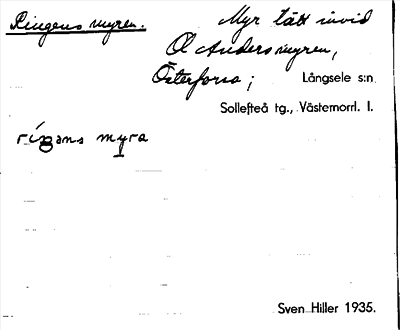 Ringens myren.
Myr tätt invid
Ol Andersmyren,
Österforse; Långsele s:n
Sollefteå tg., Västernorrl. l.
ríŋans myra
Sven Hiller 1935.